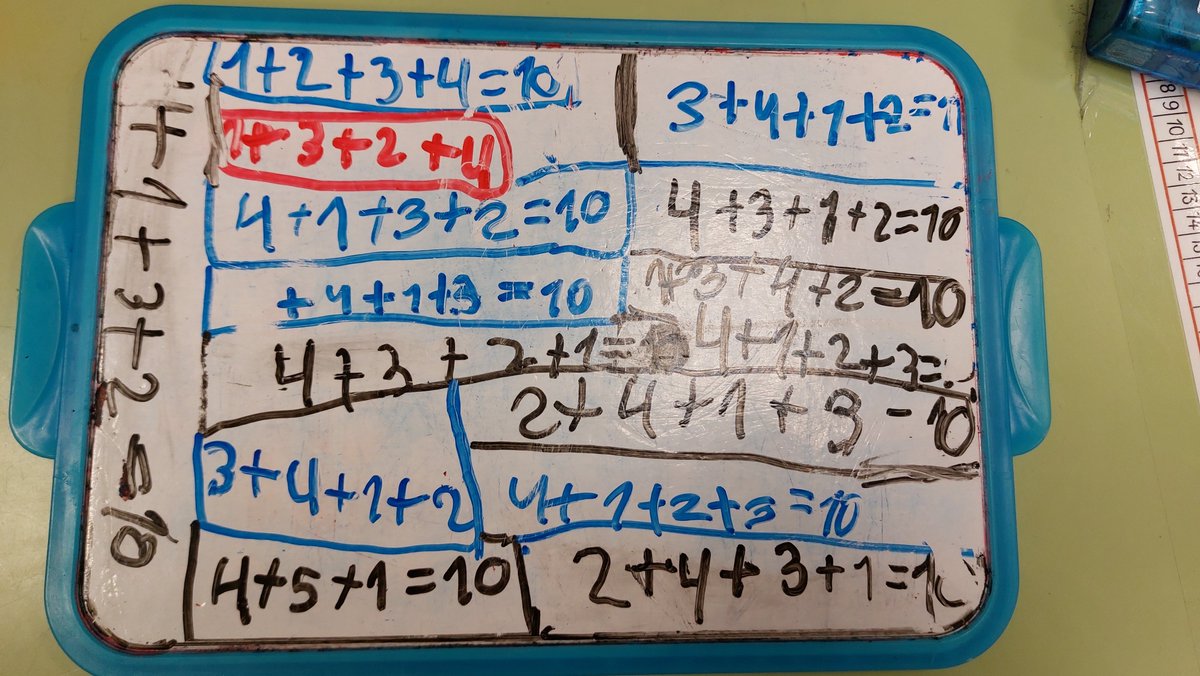 1+2+3+4=10
3+4+1+2=1
1+3+2+4
4+1+3+2=10
4+3+1+2=10
+4+1+3=10
1+3+4+2=10
4+3+2+1=10
4+1+2+3=
2+4+1+3-10
3+4+1+2
4+1+2+3=10
4+5+1=10
2+4+3+1=10
4+1+3+2=10
8 9 10 11 12 13 14